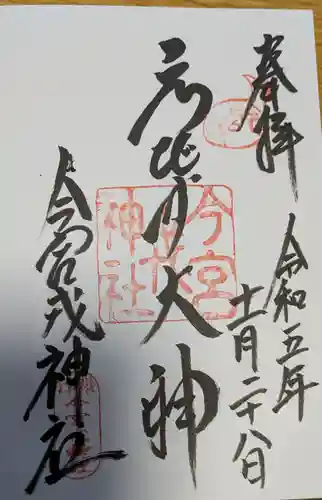 奉拝
令和五年
十一月二十八日
大神
今宮戎神社
今宮
戎
神社